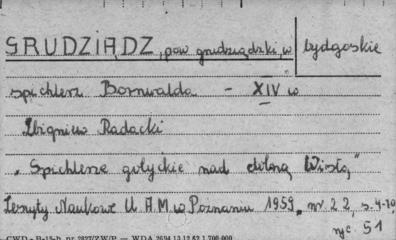 GRUDZIĄDZ, pow grudziądzki, w bydgoskie
spichlerz Bornwalda – XIV w
Zbigniew Radacki
„Spichlerze gotyckie nad dolną Wisłą"
Zeszyty Naukowe U A M w Poznaniu 1959, nr 22, s. 4-
ryc. 51
CWD - B-15-b, nr 2827/ZW/P — WDA 2694 13.12.62 1.700.000